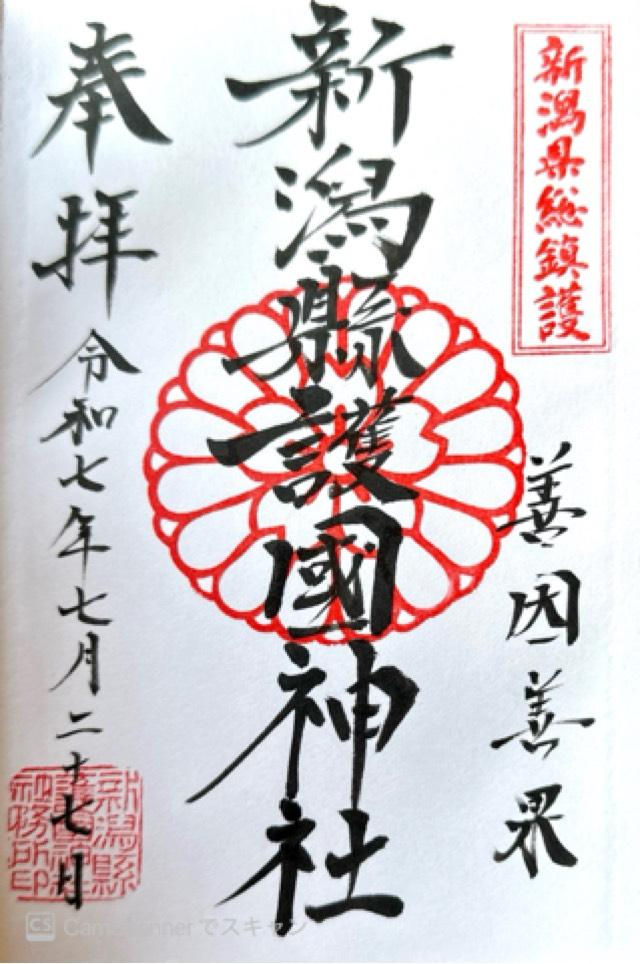 新潟県総鎮護
善因善果
新潟縣護國神社
奉拝
令和七年七月二十七日
新潟縣
護國神社
社務所印
CS CamScannerでスキャン